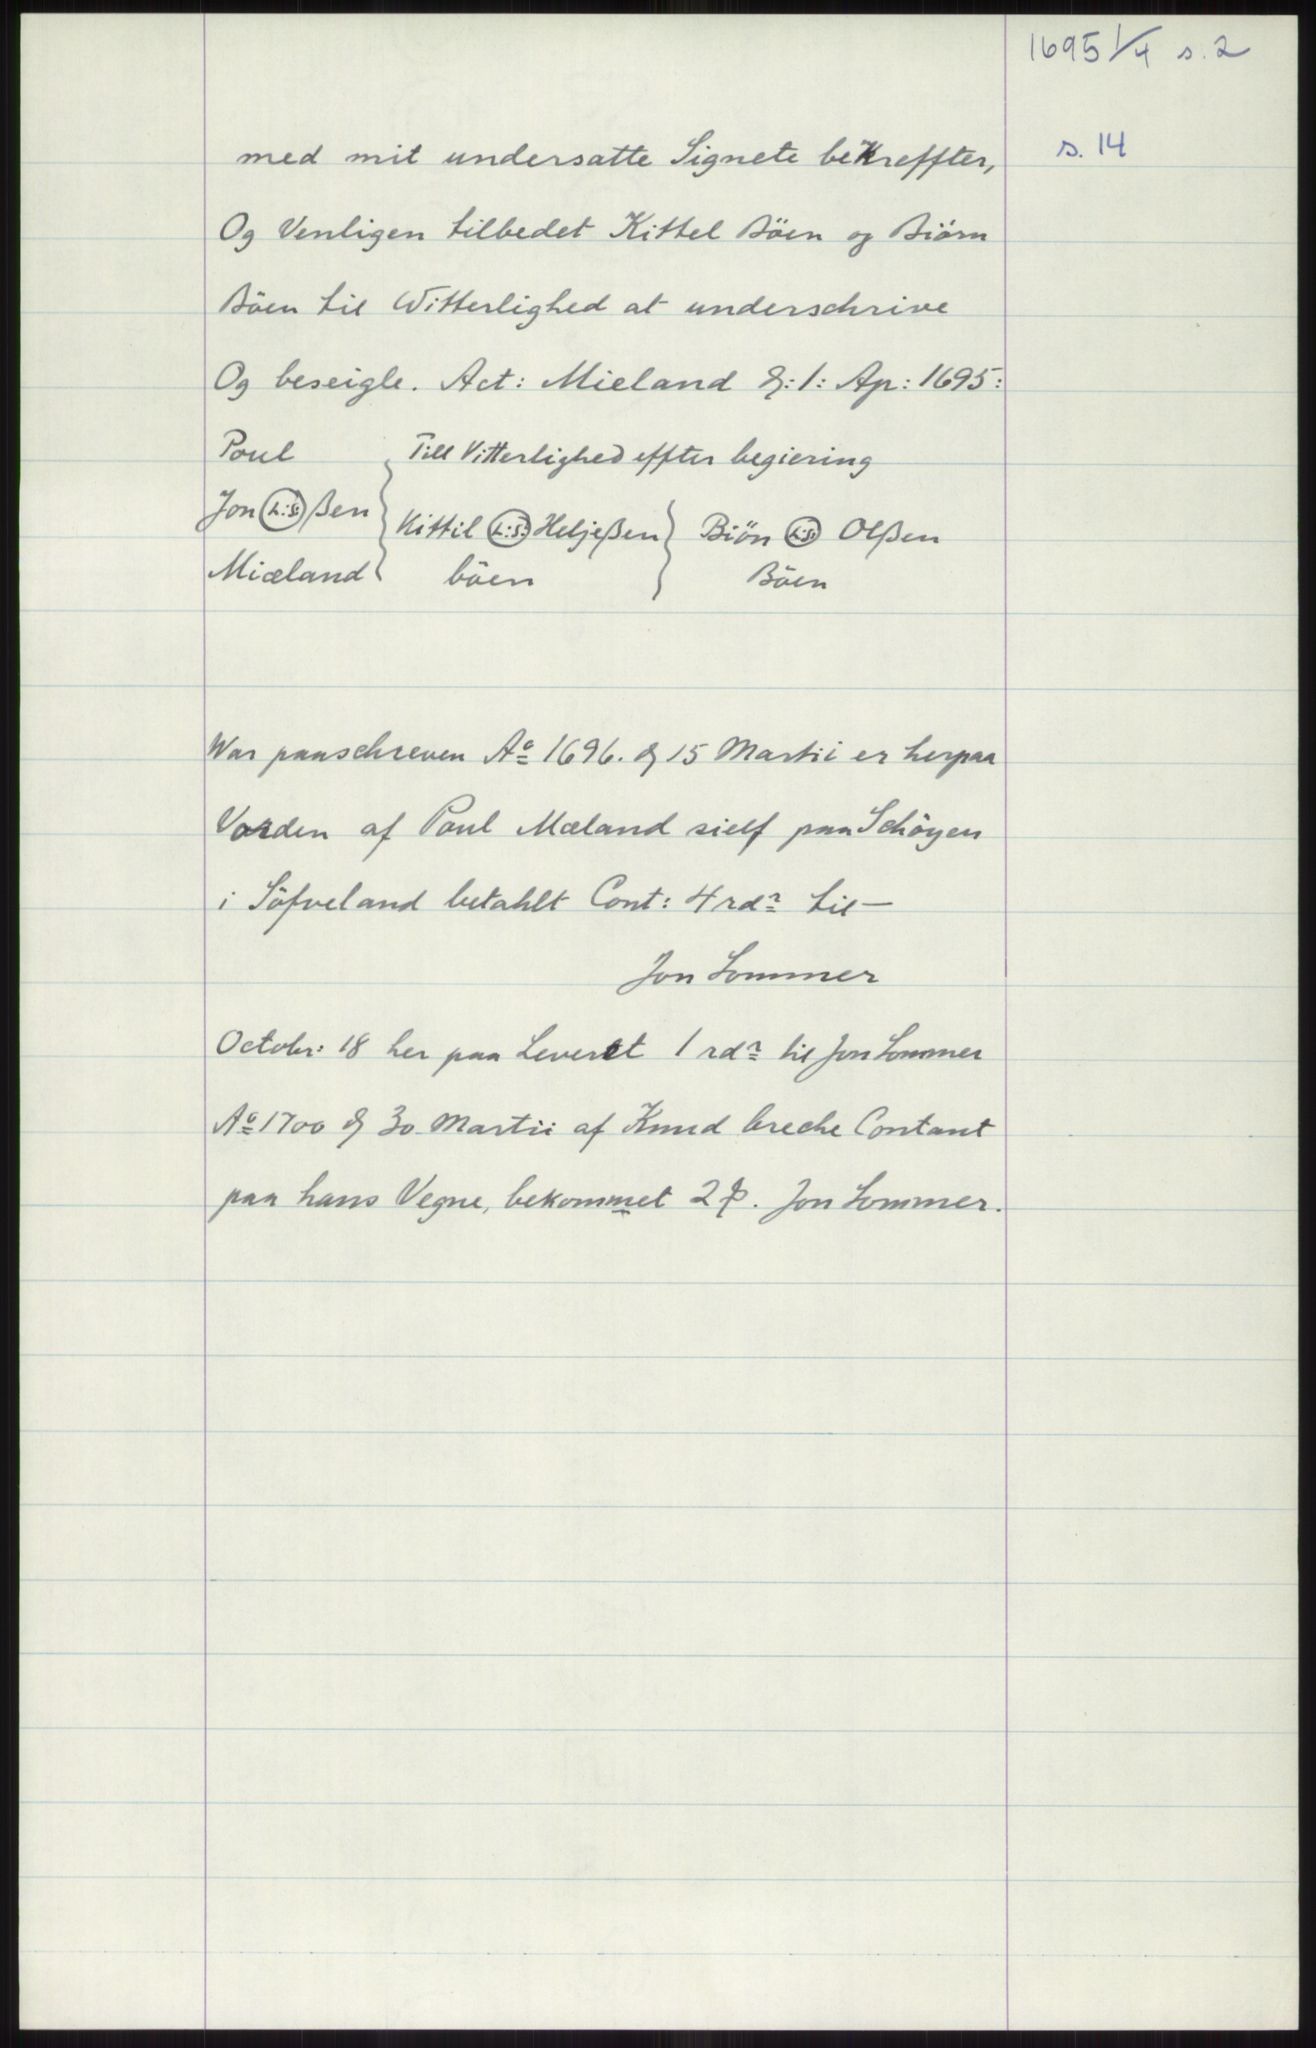 1695 1/4 s. 2
med mit undersatte Signete bekreffter, s. 14
Og Venligen tilbedet Kittel Böen og Biörn
Böen til Witterlighed at underschrive
Og beseigle. Act: Mieland d: 1: Ap: 1695:
Poul Till Vitterlighed effter begiering
Jon (L:S:) ßen Kittil (L:S:) Heljeßen Biön (L:S:) Olßen
Miæland böen Böen
War paaschreven Aº 1696. d 15 Martii er herpaa
Vorden af Poul Mæland sielf paa Schöyen
i Söfveland betahlt Cont: 4 rdr til —
Jon Sommer
Octobr: 18 her paa Leveret 1 rdr til Jon Sommer
Aº 1700 d 30 Martii af Knud breche Contant
paa hans Vegne, bekommet 2 ꝭ. Jon Sommer.